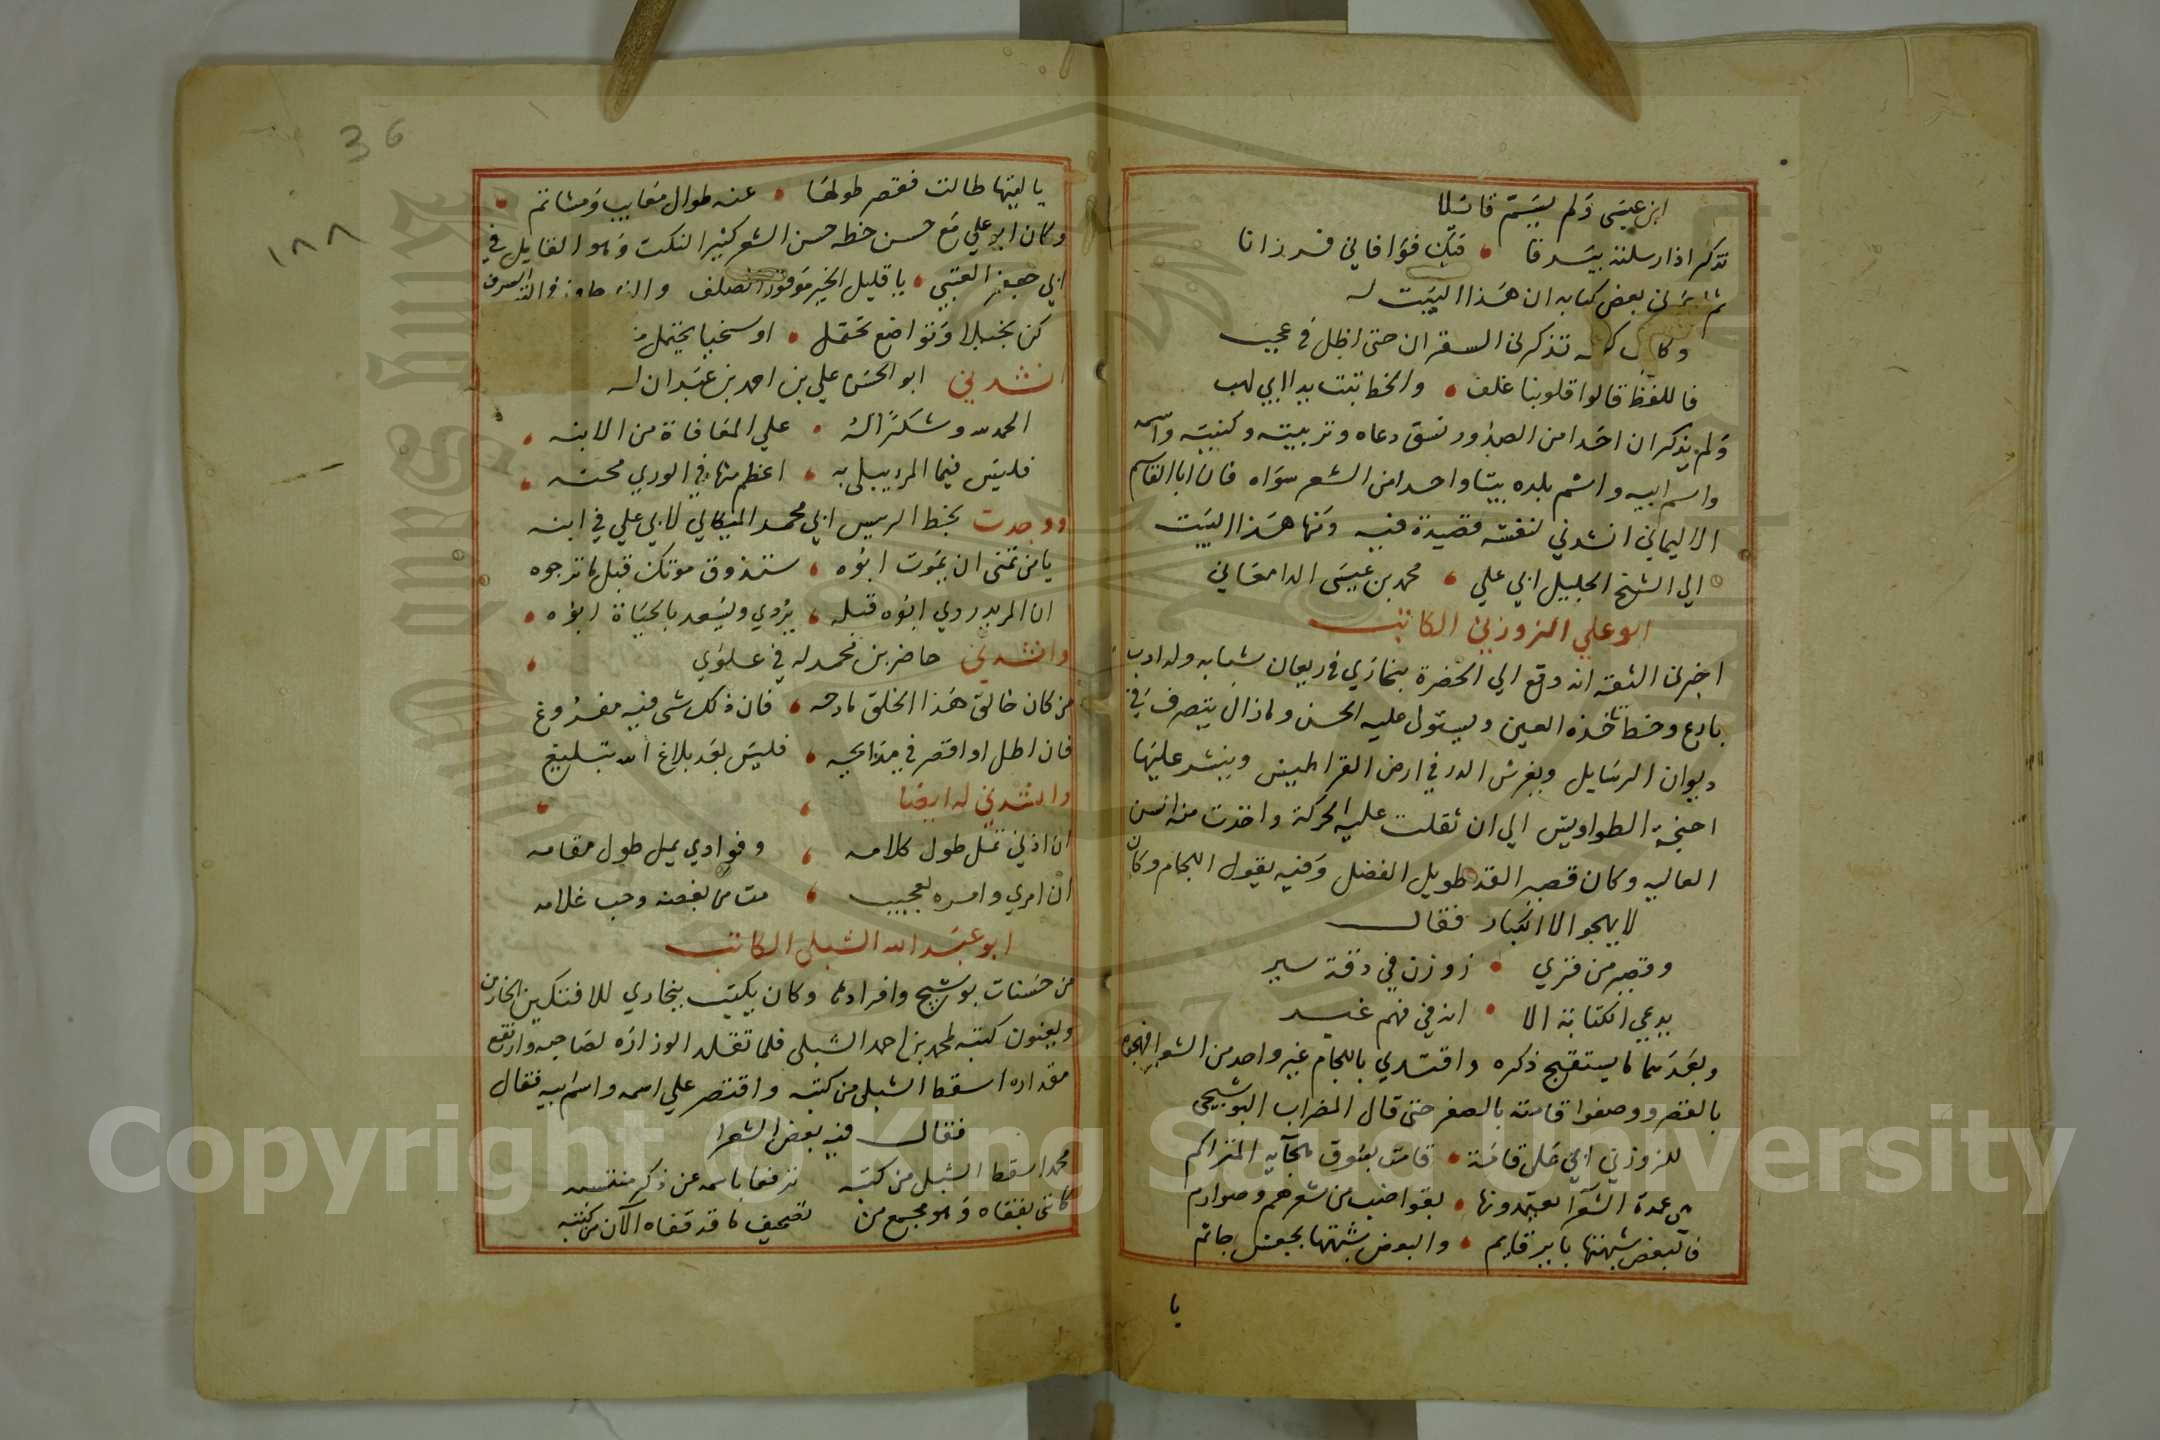 ابن عيسى ولم يتسم قائلا
تذكر اذا ارسلته بيدقا • فيك فوافاني فرزانا
ثم في بعض كتابه ان هذا البيت له
وكاتب كتبه تذكرني السقران حتى اظل في عجب
فاللفظ قالوا قلوبنا غلف • والخط تبت يدا ابي لهب
ولم يذكر ان احدا من الصدور نسق دعاه وترتيبه وكنيته واسمه
واسم ابيه واسم بلده بيتا واحدا من الشعر سواه فان ابا القاسم
الاليماني انشدني لنفسه قصيدة فيه ومنها هذا البيت
الي الشيخ الجليل ابي علي • محمد بن عيسى الدامغاني
ابو علي الزوزني الكاتب
اخبرني الثقه انه وقع الي الحضرة ببخاري في ريعان شبابه وله ادب
بارع وخط تاخذه العين ويستولي عليه الحسن ومازال يتصرف في
ديوان الرسايل ويغرس الدر في ارض القراطيس وينشر عليها
اجنحة الطواويس الي ان ثقلت عليه الحركة واخذت منه السن
العاليه وكان قصير القد طويل الفضل وفيه يقول اللجام وكان
لا يهجو الا الكبار فقال
وقصير من قري • زوزن في دقة سير
يدعي الكتابة الا • انه في فهم عير
وبعدهما ما يستقبح ذكره واقتدي باللجام غير واحد من الشعرا فهجوه
بالقصر ووصفوا قامته بالصغر حتى قال المضراب البوشنجي
للزوزني ابي علي قامة • قامت بسوق هجآيه المتراكم
هي عمدة الشعرآ يعتمدونها • بقواضب من شعرهم وصوارم
فالبعض شبهها باير قايم • والبعض شبهها بجعس جاثم
يا
36
١٨٨
يا ليتها طالت فقصر طولها • عنه طوال معايب ومشاتم •
وكان ابو علي مع حسن خطه حسن الشعر كثير النكت وهو القايل في
ابي جعفر العتبي • يا قليل الخير موفور الصلف
كن بخيلا وتواضع تحتمل • او سخيا يحتمل
انشدني ابو الحسن علي بن احمد بن عبدان له
الحمد لله وشكرا له • علي المعافاة من الابنه •
فليس فيما المرء يبلى به • اعظم منها في الوري محنه •
ووجدت بخط الرييس ابي محمد الميكالي لابي علي في ابنه
يا من تمنى ان يموت ابوه • ستذوق موتك قبل ما ترجوه
ان المريد ردي ابوه قبله • يردي ويسعد بالحياة ابوه •
وانشدني حاضر بن محمد له في علوي •
من كان خالق هذا الخلق مادحه • فان ذلك شي فيه مفروغ
فان اطل او اقصر في مدايحه • فليس بعد بلاغ الله تبليغ
وانشدني له ايضا • •
ان اذني تمل طول كلامه • وفوادي يمل طول مقامه
ان امري وامره لعجيب • مت من بغضه وحب غلامه
ابو عبد الله الشبلي الكاتب
من حسنات بوشنج وافرادها وكان يكتب ببخاري للافتكين الخازن
ويعنون كتبه لمحمد بن احمد الشبلي فلما تقلد الوزاره لصاحبه وارتفع
مقداره اسقط الشبلي من كتبه واقتصر علي اسمه واسم ابيه فقال
فقال فيه بعض الشعرا
محمد اسقط الشبلي من كتبه ترفعا باسمه عن ذكر منتسبه
كانني بقفاه وهو مجمع من تصحيف ما قد قفاه الآن من كتبه